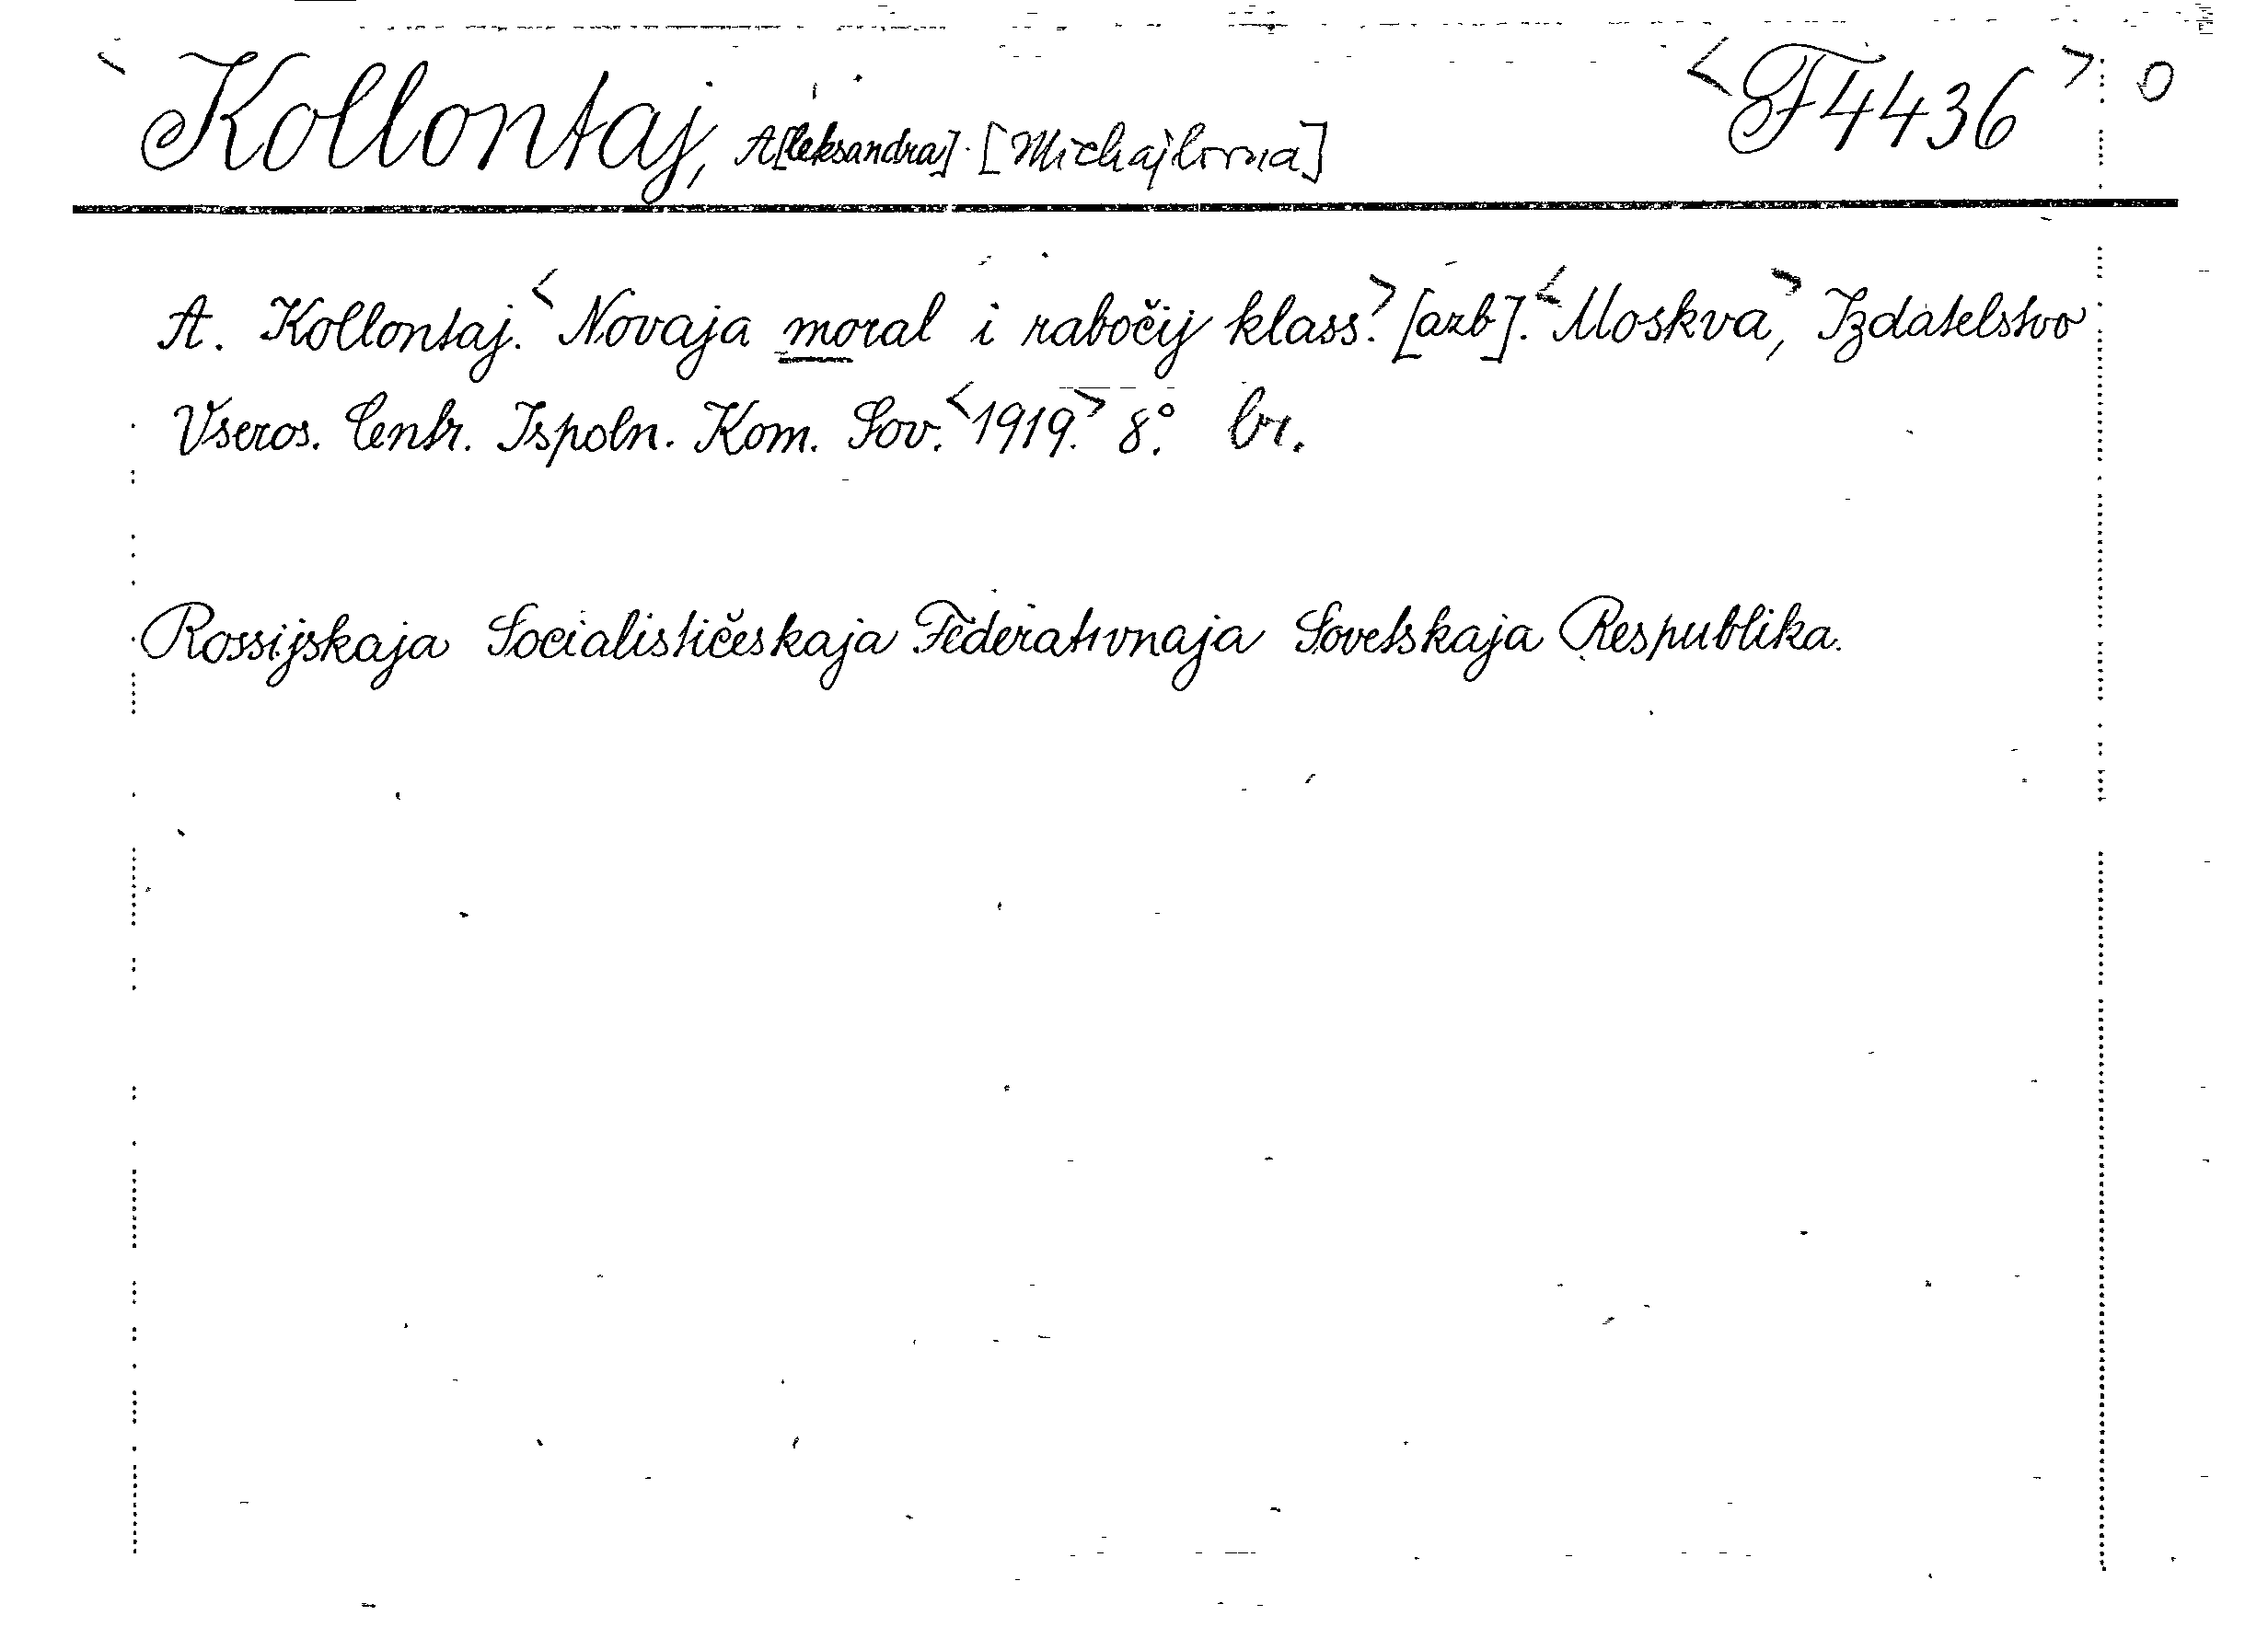 Kollontaj, A[leksandra] [Michajlovna] <F4436> 0
A. Kollontaj. <Novaja moral i rabočij klass.> [azb]. <Moskva>, Izdatelstvo
Vseros. Centr. Ispoln. Kom. Sov. <1919.> 8º. br.
Rossijskaja Socialističeskaja Federativnaja Sovetskaja Respublika.